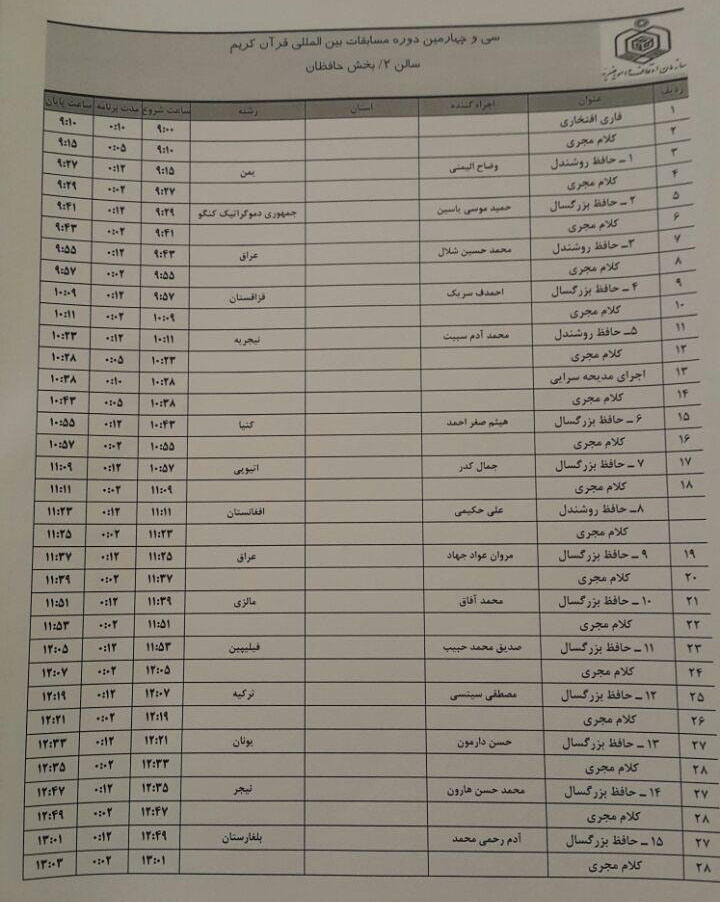 سی و چهارمین دوره مسابقات بین المللی قرآن کریم
سالن ۲/ بخش حافظان
سازمان اوقاف و امور خیریه
ردیف عنوان اجراء کننده استان رشته ساعت شروع مدت برنامه ساعت پایان
۱ قاری افتخاری ۹:۰۰ ۰:۱۰ ۹:۱۰
۲ کلام مجری ۹:۱۰ ۰:۰۵ ۹:۱۵
۳ ۱ـ حافظ روشندل وضاح الیمنی یمن ۹:۱۵ ۰:۱۲ ۹:۲۷
۴ کلام مجری ۹:۲۷ ۰:۰۲ ۹:۲۹
۵ ۲ـ حافظ بزرگسال حمید موسی یاسین جمهوری دموکراتیک کنگو ۹:۲۹ ۰:۱۲ ۹:۴۱
۶ کلام مجری ۹:۴۱ ۰:۰۲ ۹:۴۳
۷ ۳ـ حافظ روشندل محمد حسین شلال عراق ۹:۴۳ ۰:۱۲ ۹:۵۵
۸ کلام مجری ۹:۵۵ ۰:۰۲ ۹:۵۷
۹ ۴ـ حافظ بزرگسال احمدف سریک قزاقستان ۹:۵۷ ۰:۱۲ ۱۰:۰۹
۱۰ کلام مجری ۱۰:۰۹ ۰:۰۲ ۱۰:۱۱
۱۱ ۵ـ حافظ روشندل محمد آدم سبیت نیجریه ۱۰:۱۱ ۰:۱۲ ۱۰:۲۳
۱۲ کلام مجری ۱۰:۲۳ ۰:۰۵ ۱۰:۲۸
۱۳ اجرای مدیحه سرایی ۱۰:۲۸ ۰:۱۰ ۱۰:۳۸
۱۴ کلام مجری ۱۰:۳۸ ۰:۰۵ ۱۰:۴۳
۱۵ ۶ـ حافظ بزرگسال هیثم صقر احمد کنیا ۱۰:۴۳ ۰:۱۲ ۱۰:۵۵
۱۶ کلام مجری ۱۰:۵۵ ۰:۰۲ ۱۰:۵۷
۱۷ ۷ـ حافظ بزرگسال جمال کدر اتیوپی ۱۰:۵۷ ۰:۱۲ ۱۱:۰۹
۱۸ کلام مجری ۱۱:۰۹ ۰:۰۲ ۱۱:۱۱
۸ـ حافظ روشندل علی حکیمی افغانستان ۱۱:۱۱ ۰:۱۲ ۱۱:۲۳
کلام مجری ۱۱:۲۳ ۰:۰۲ ۱۱:۲۵
۱۹ ۹ـ حافظ بزرگسال مروان عواد جهاد عراق ۱۱:۲۵ ۰:۱۲ ۱۱:۳۷
۲۰ کلام مجری ۱۱:۳۷ ۰:۰۲ ۱۱:۳۹
۲۱ ۱۰ـ حافظ بزرگسال محمد آفاق مالزی ۱۱:۳۹ ۰:۱۲ ۱۱:۵۱
۲۲ کلام مجری ۱۱:۵۱ ۰:۰۲ ۱۱:۵۳
۲۳ ۱۱ـ حافظ بزرگسال صدیق محمد حبیب فیلیپین ۱۱:۵۳ ۰:۱۲ ۱۲:۰۵
۲۴ کلام مجری ۱۲:۰۵ ۰:۰۲ ۱۲:۰۷
۲۵ ۱۲ـ حافظ بزرگسال مصطفی سیتسی ترکیه ۱۲:۰۷ ۰:۱۲ ۱۲:۱۹
۲۶ کلام مجری ۱۲:۱۹ ۰:۰۲ ۱۲:۲۱
۲۷ ۱۳ـ حافظ بزرگسال حسن دارمون یونان ۱۲:۲۱ ۰:۱۲ ۱۲:۳۳
۲۸ کلام مجری ۱۲:۳۳ ۰:۰۲ ۱۲:۳۵
۲۷ ۱۴ـ حافظ بزرگسال محمد حسن هارون نیجر ۱۲:۳۵ ۰:۱۲ ۱۲:۴۷
۲۸ کلام مجری ۱۲:۴۷ ۰:۰۲ ۱۲:۴۹
۲۷ ۱۵ـ حافظ بزرگسال آدم رحمی محمد بلغارستان ۱۲:۴۹ ۰:۱۲ ۱۳:۰۱
۲۸ کلام مجری ۱۳:۰۱ ۰:۰۲ ۱۳:۰۳